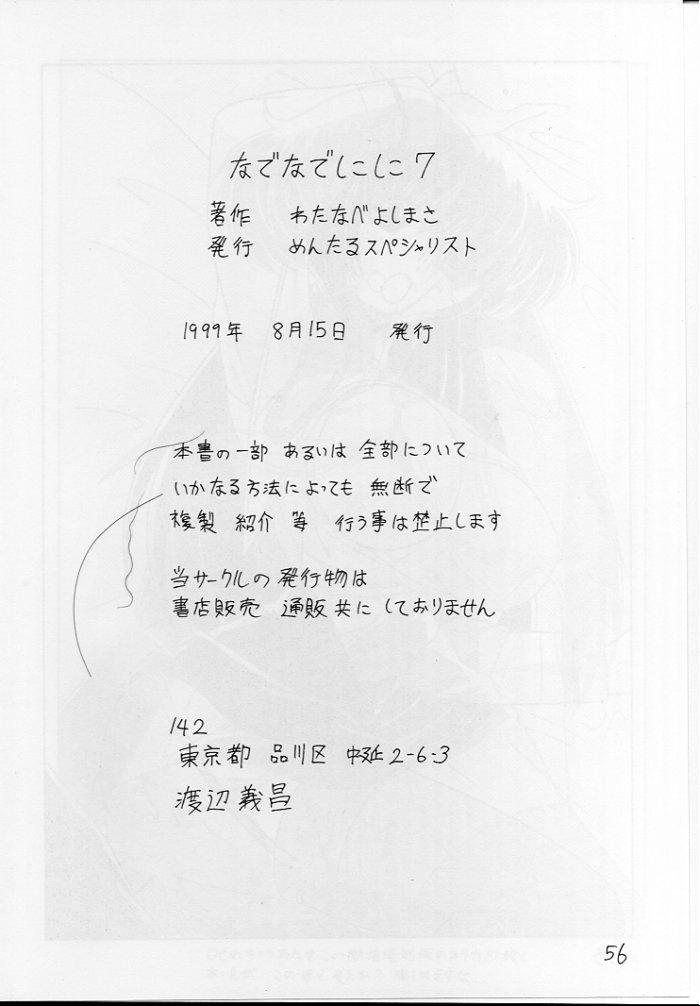 なでなでしこしこ7
著作 わたなべよしまさ
発行 めんたるスペシャリスト
1999年 8月15日 発行
本書の一部 あるいは 全部について
いかなる方法によっても 無断で
複製 紹介 等 行う事は禁止します
当サークルの発行物は
書店販売 通販共にしておりません
142
東京都 品川区 中延2-6-3
渡辺義昌
56